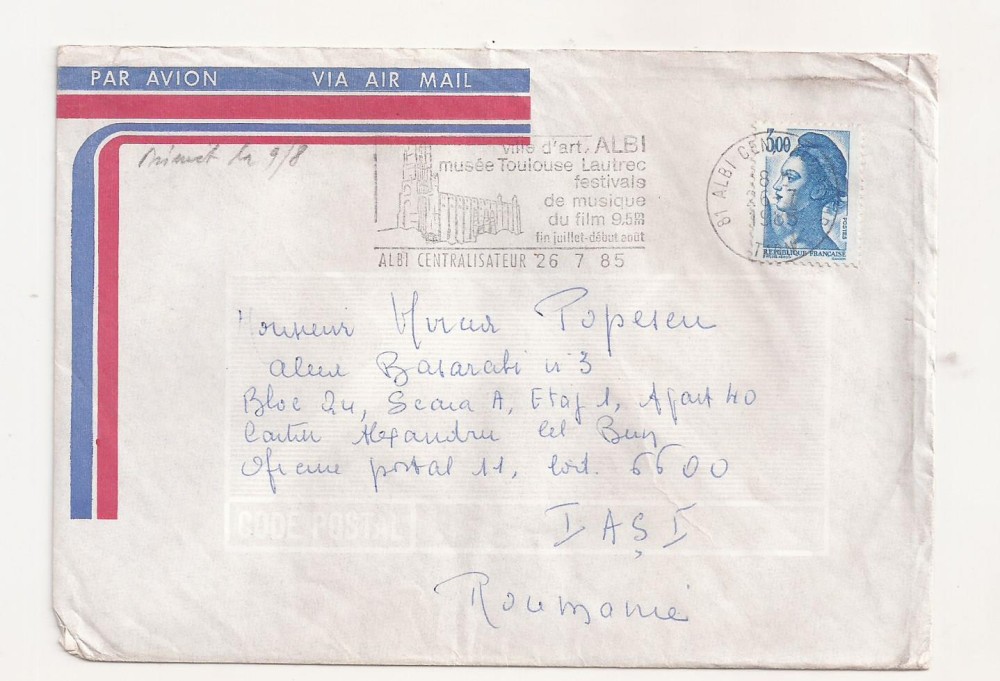 PAR AVION VIA AIR MAIL
Primit la 9/8
ville d'art. ALBI
musée Toulouse Lautrec
festivals
de musique
du film 9.5m/m
fin juillet-début août
ALBI CENTRALISATEUR 26 7 85
81 ALBI CEN
18 H
26 - 7
1985
3,00
POSTES
REPUBLIQUE FRANÇAISE
Monsieur Mircea Popescu
aleea Basarabi n°3
Bloc 2u, Scara A, Etaj 1, Apart 40
Cartier Alexandru cel Bun
Oficiul postal 11, cod. 6600
IAŞI
Roumanie
CODE POSTAL